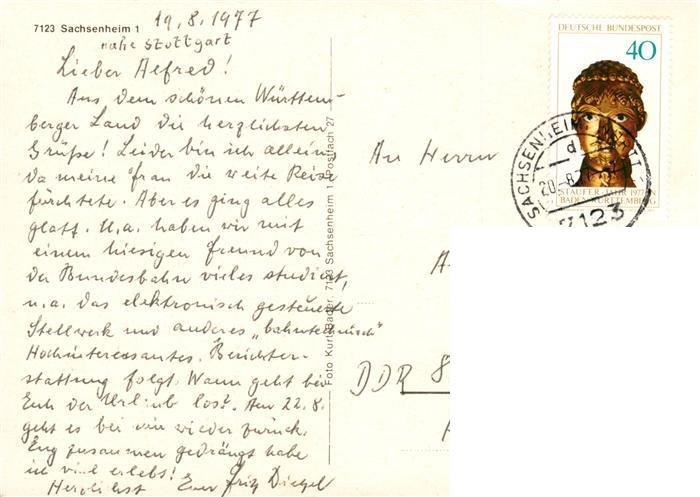 19.8.1977
7123 Sachsenheim 1
nahe Stuttgart
Lieber Alfred!
Aus dem schönen Württem-
berger Land die herzlichsten
Grüße! Leider bin ich allein
da meine Frau die weite Reise
fürchtete. Aber es ging alles
glatt. U.a. haben wir mit
einem hiesigen Freund von
der Bundesbahn vieles studiert,
u.a. das elektronisch gesteuerte
Stellwerk und anderes „bahntechnisch"
Hochinteressantes. Berichter-
stattung folgt. Wann geht bei
Euch der Urlaub los? Am 22.8.
geht es bei mir wieder zurück.
Eng zusammen gedrängt habe
ich viel erlebt!
Herzlichst Euer Fritz
Foto Kurt Bader, 7123 Sachsenheim 1, Postfach 27
DEUTSCHE BUNDESPOST
40
STAUFER-JAHR 1977
BADEN-WÜRTTEMBERG
SACHSENHEIM
d
20.-8.
7123
An Herrn
DDR 8